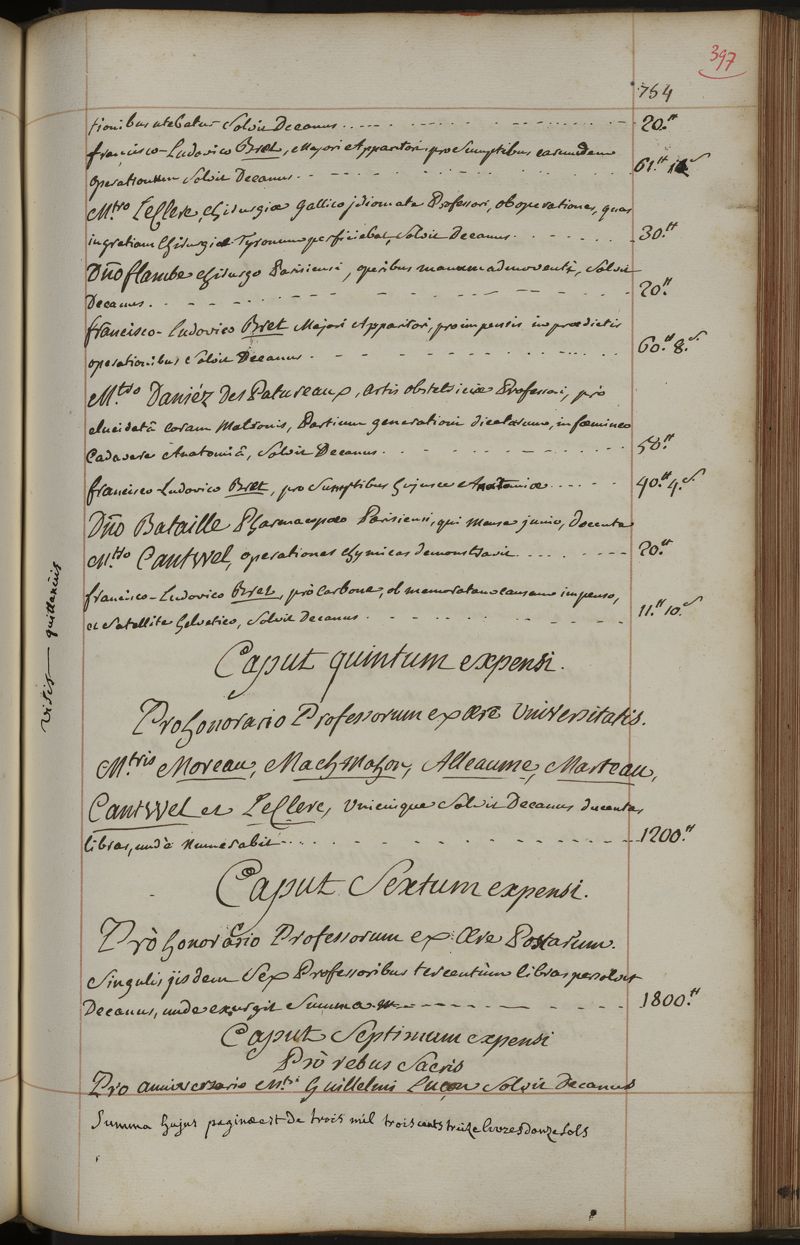 397
754
tionibus utebatur Solvit Decanus 20.tt
francisco-Ludovico Bret, Majori Apparitori, pro Sumptibus earumdem
operationum Solvit Decanus 61.tt
M.tro Leclerc, Chirurgiæ Gallico jdiomate Professori, ob operationes, quas
in gratiam Chirurgiæ Tyronum perficiebat, Solvit Decanus 30.tt
Dño flambe Chirurgo Parisiensi, operibus manum admoventi, Solvit
Decanus 20.tt
francisco-Ludovico Bret Majori Apparitori, pro impensis in prædictis
operationibus Solvit Decanus 60.tt 8.s
M.tro Daniéz Des Patureaux, artis obstetriciæ Professori, prò
elucidatâ coram Matronis, Partium generationi dicatarum, in foemineo
Cadavere Anatomiâ, Solvit Decanus 50.tt
francisco-Ludovico Bret, pro Sumptibus hujusce Anatomiæ 40.tt 4.s
Dño Bataille Pharmacopæo Parisiensi, qui mense junio, docente
M.tro Cantwel, operationes chymicas demonstravit 20.tt
francisco-Ludovico Bret, prò Carbone, ob memoratam causam impenso,
et Satellite helvetico, Solvit Decanus 11.tt 10.s
visis quittanciis
Caput quintum expensi.
Pro honorario Professorum ex ære Universitatis.
M.tris Moreau, Mac hMahon, Alleaume, Marteau,
Cantwel et Leclerc, Unicuique Solvit Decanus ducentas
libras, undè numerabit 1200.tt
Caput Sextum expensi.
Prò honorario Professorum ex Ære Postarum.
Singulis jisdem Sex Professoribus tercentùm libras persolvit
Decanus, unde exurgit Summa 1800.tt
Caput Septimum expensi
Prò rebus Sacris
Pro anniversario M.tri Guillelmi Luçon Solvit Decanus
Summa hujus paginæ est de trois mil trois cents treize livres douze sols